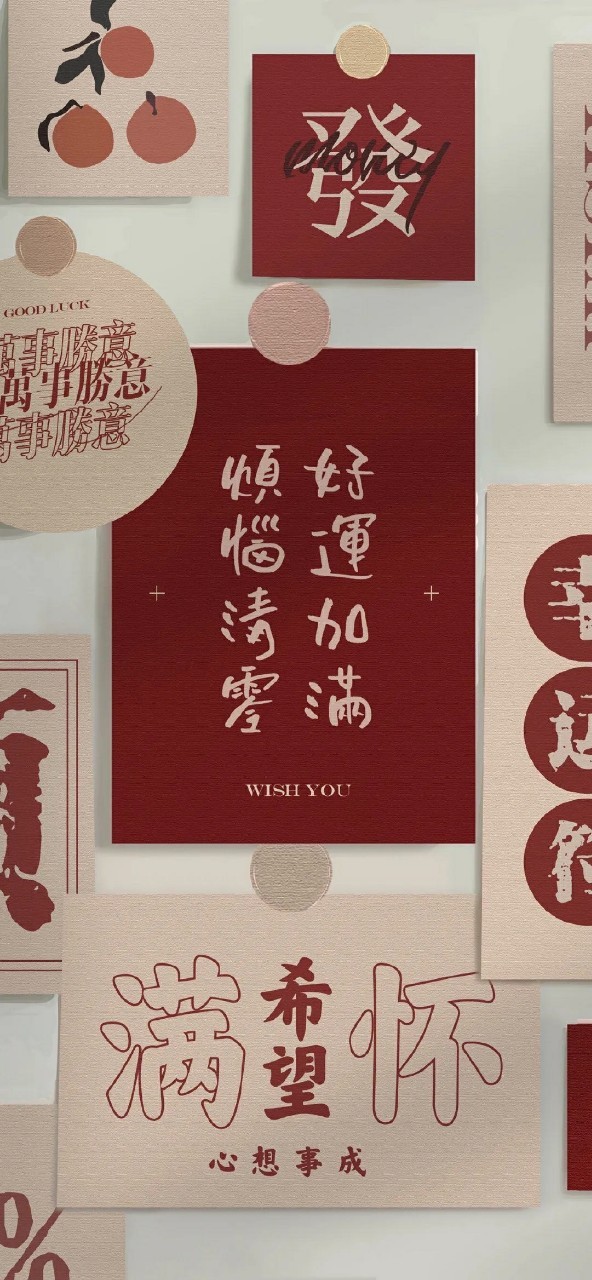 發
money
GOOD LUCK
萬事勝意
萬事勝意
萬事勝意
好運加滿
煩惱清零
WISH YOU
幸
运
符
满怀
希望
心想事成
%